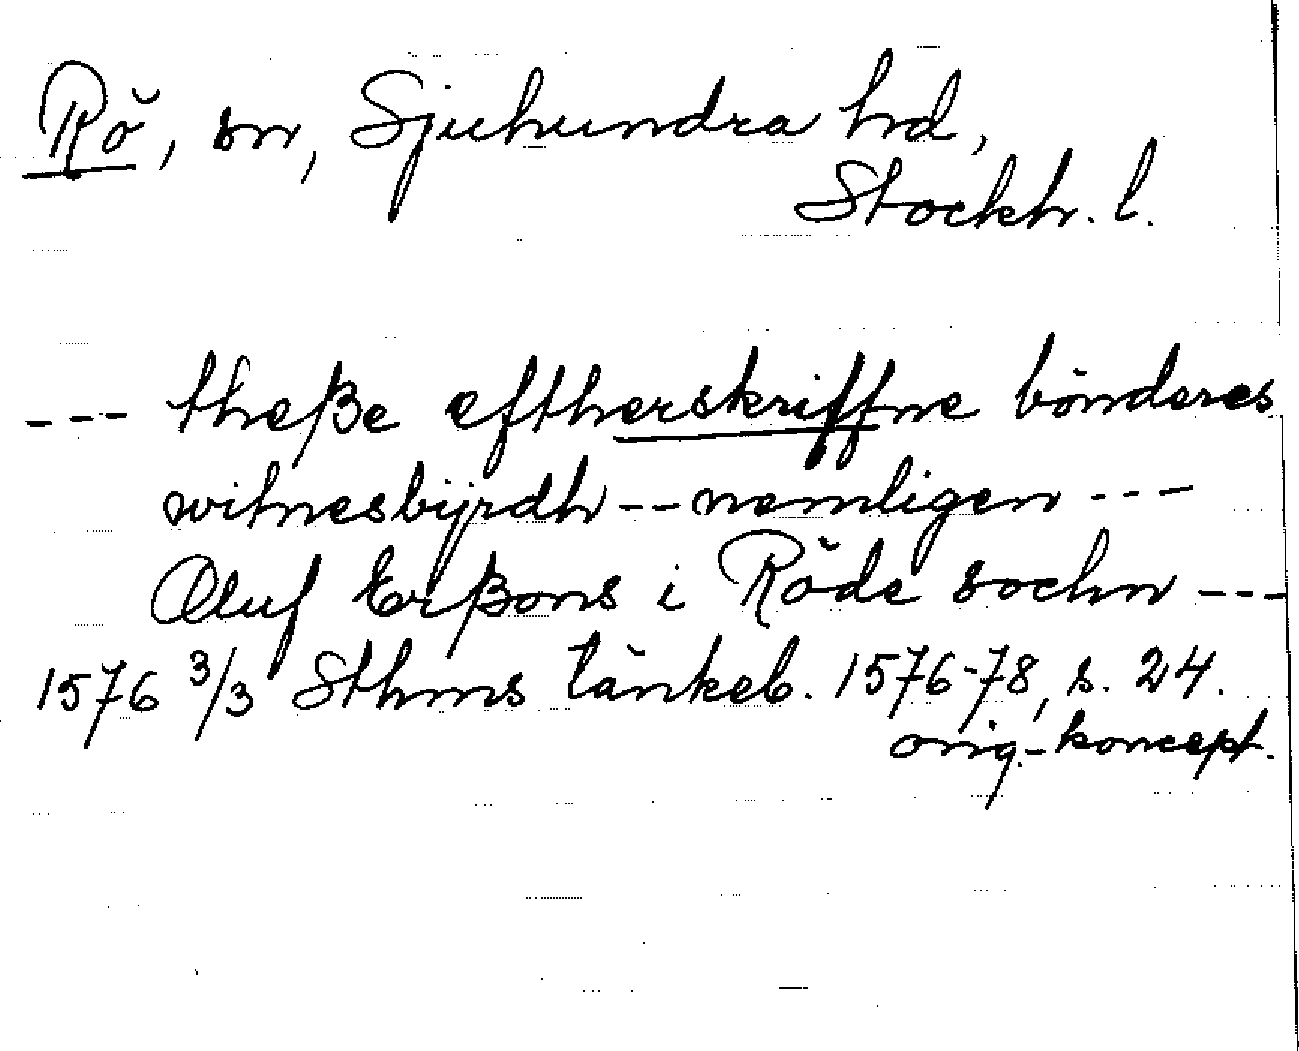 Rö, sn, Sjuhundra hd,
Stockh. l.
--- theße eftherskriffne bönderes
witnesbijrdh -- nemligen ---
Oluf Erßons i Röde sochn ---
1576 3/3 Sthms tänkeb. 1576-78, s. 24.
orig.-koncept.